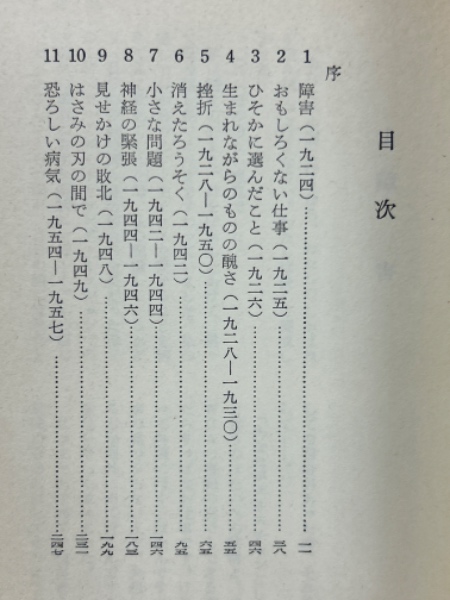 目次
序
1 障害（一九二四）……一一
2 おもしろくない仕事（一九二五）……二八
3 ひそかに選んだこと（一九二六）……四六
4 生まれながらのものの醜さ（一九二八―一九三〇）……五五
5 挫折（一九二八―一九五〇）……六五
6 消えたろうそく（一九四二）……九五
7 小さな問題（一九四二―一九四四）……一四六
8 神経の緊張（一九四四―一九四六）……一八三
9 見せかけの敗北（一九四八）……一九九
10 はさみの刃の間で（一九四九）……二三一
11 恐ろしい病気（一九五四―一九五七）……二四七